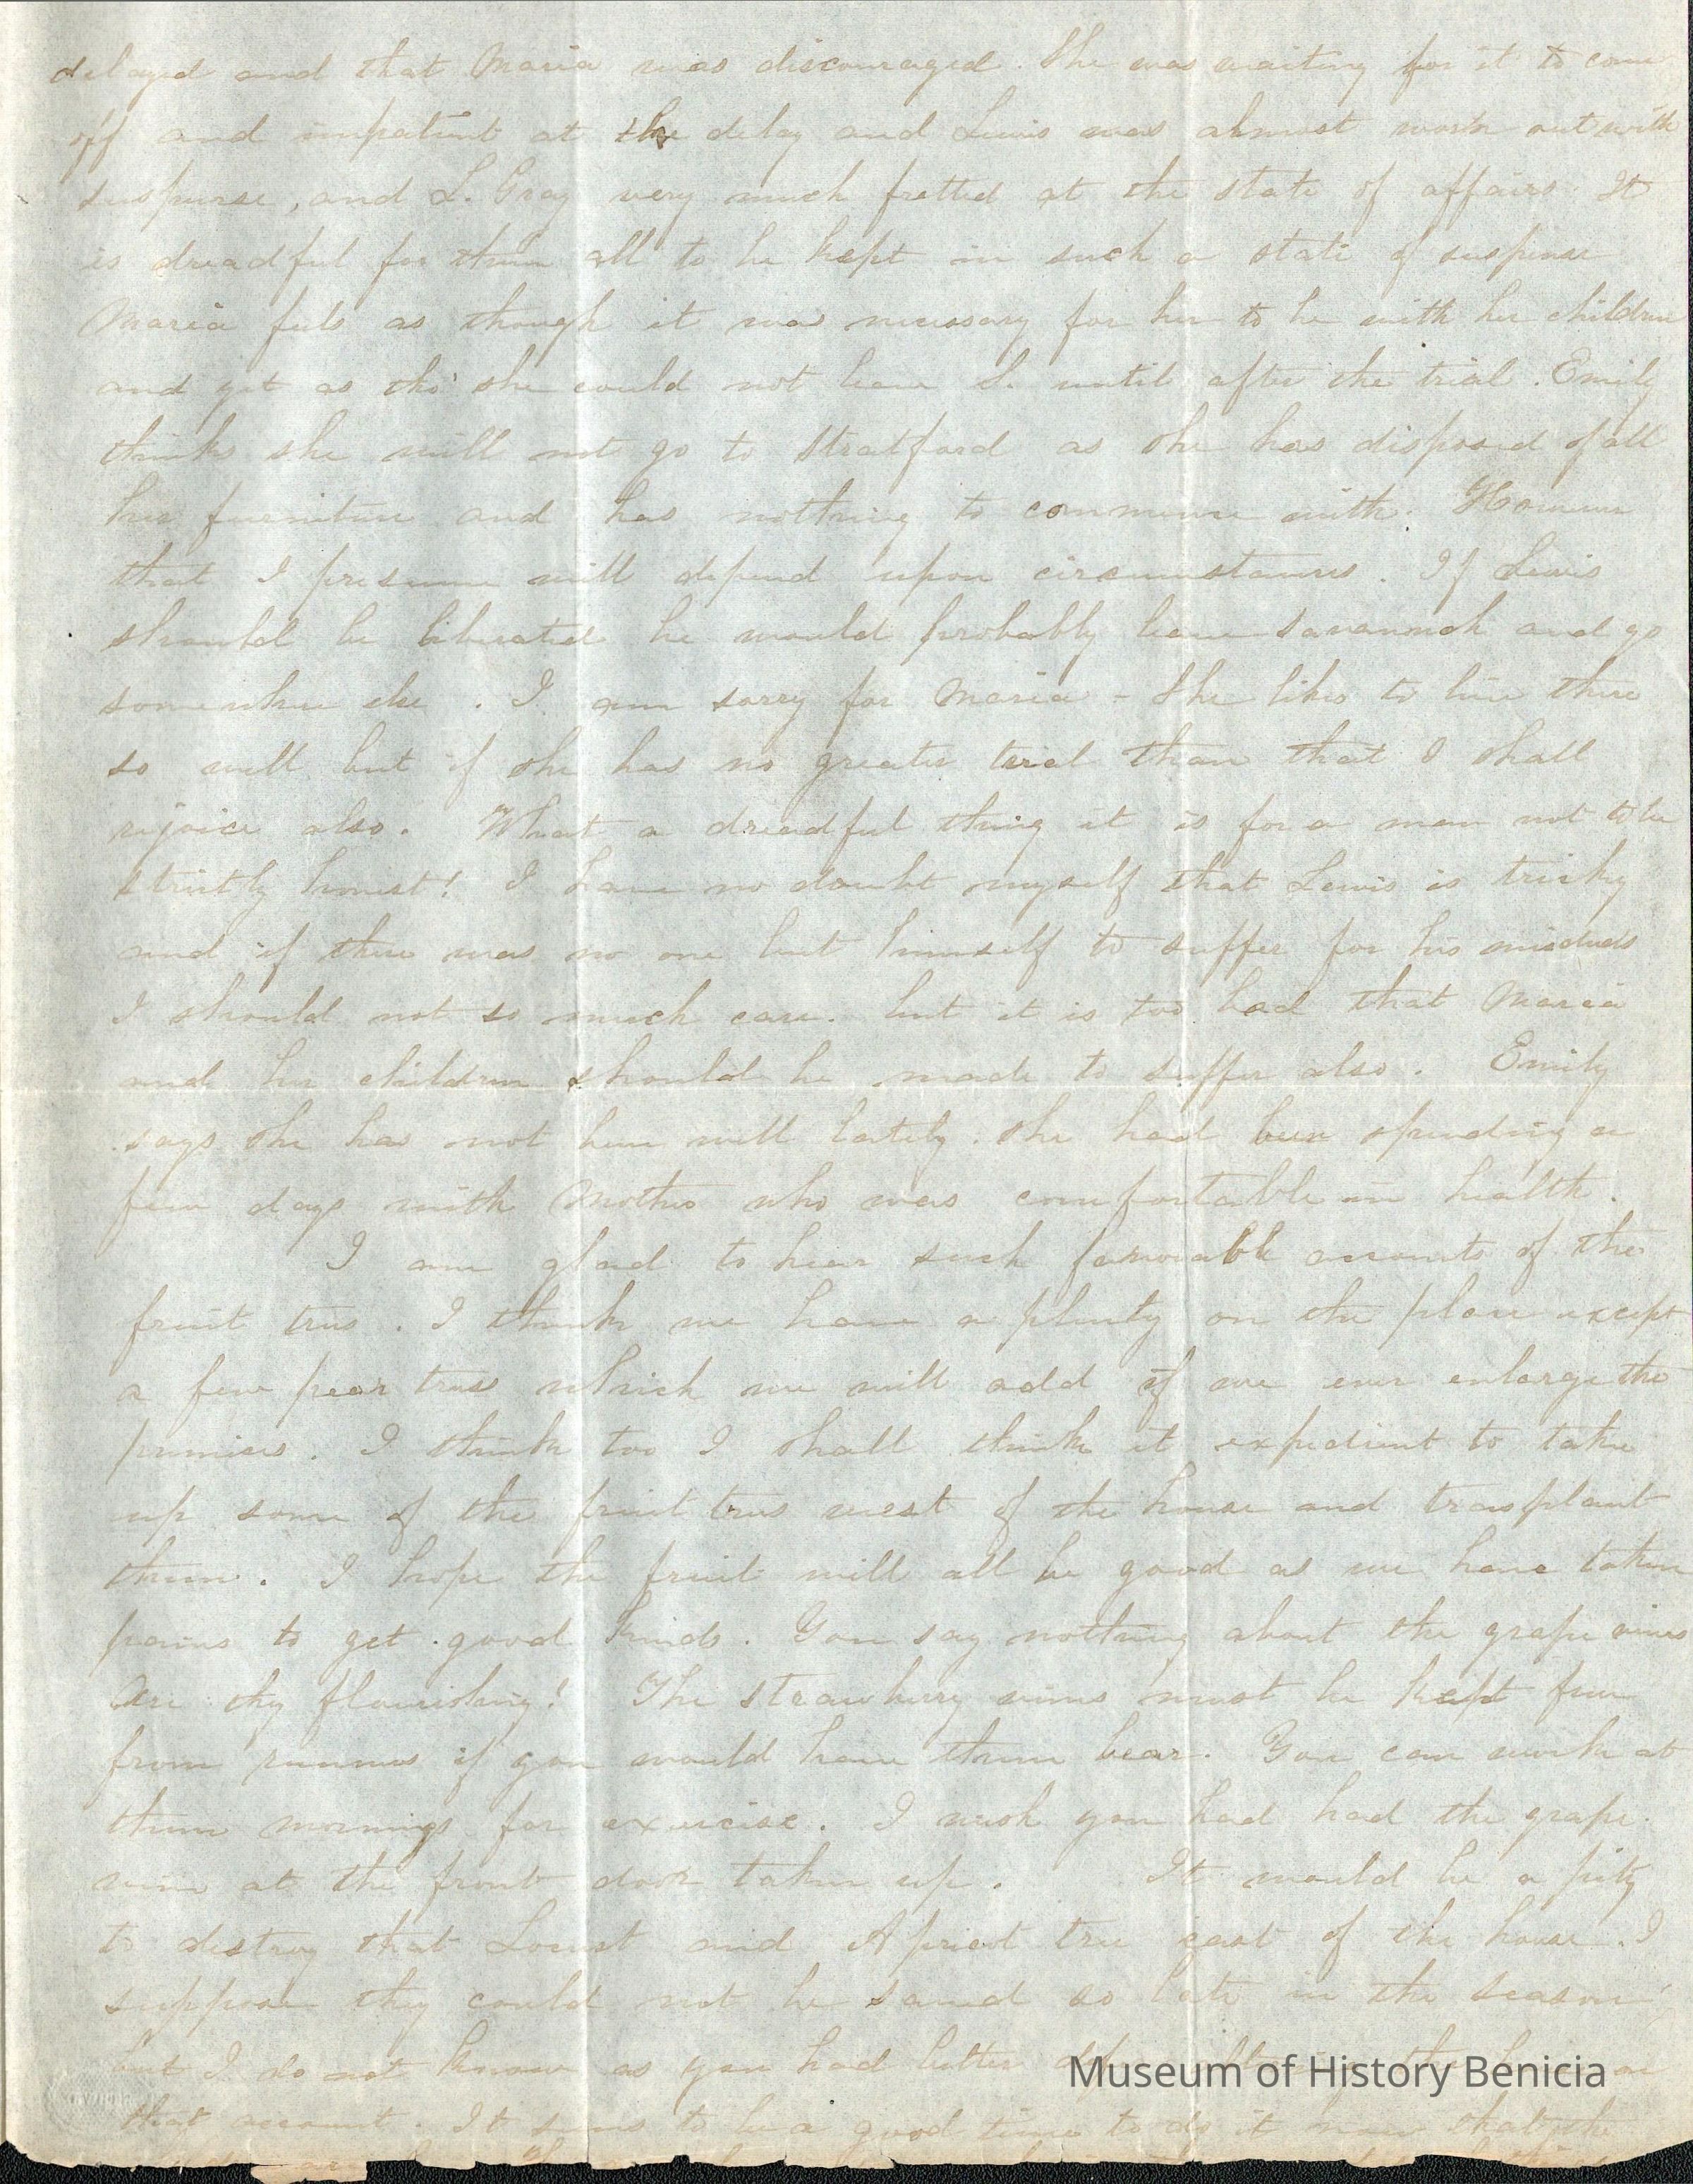 delayed and that Maria was discouraged. She was waiting for it to come
off and impatient at the delay and Lewis was almost worn out with
suspense, and L. Gray very much fretted at the state of affairs. It
is dreadful for them all to be kept in such a state of suspense
Maria feels as though it was necessary for her to be with her children
and yet as tho' she could not leave L. until after the trial. Emily
thinks she will not go to Stratford as she has disposed of all
her furniture and has nothing to commence with. However
that I presume will depend upon circumstances. If Lewis
should be liberated he would probably leave Savannah and go
somewhere else. I am sorry for Maria - She likes to live there
so well but if she has no greater trial than that I shall
rejoice also. What a dreadful thing it is for a man not to be
strictly honest! I have no doubt myself that Lewis is tricky
and if there was no one but himself to suffer for his misdeeds
I should not so much care. but it is too bad that Maria
and her children should be made to suffer also. Emily
says she has not been well lately. She had been spending a
few days with Mother who was comfortable in health.
I am glad to hear such favorable accounts of the
fruit trees. I think we have a plenty on the place except
a few pear trees which we will add if we ever enlarge the
premises. I think too I shall think it expedient to take
up some of the fruit trees west of the house and transplant
them. I hope the fruit will all be good as we have taken
pains to get good kinds. You say nothing about the grape vines
Are they flourishing? The strawberry vines must be kept free
from runners if you would have them bear. You can work at
them mornings for exercise. I wish you had had the grape
vine at the front door taken up. It would be a pity
to destroy that Locust and Apricot tree east of the house. I
suppose they could not be saved so late in the season,
but I do not know as you had better on
that account. It seems to be a good time to do it now that the
Museum of History Benicia